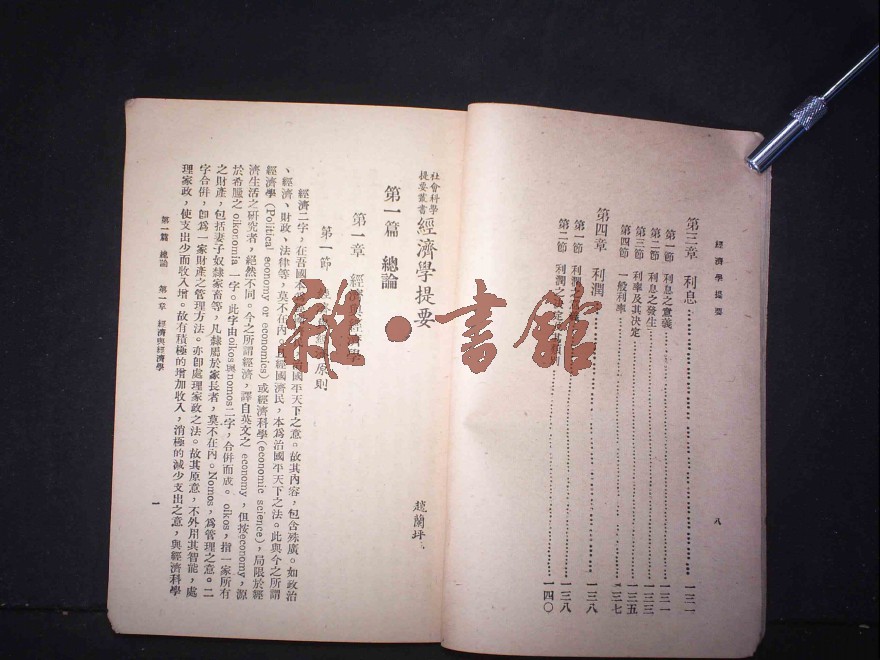 經濟學提要
第三章 利息……131
第一節 利息之意義……131
第二節 利息之發生……133
第三節 利率及其決定……135
第四節 一般利率……137
第四章 利潤……138
第一節 利潤之……138
第二節 利潤之決定……140
八
社會科學
提要叢書
經濟學提要
趙蘭坪
第一篇 總論
第一章 經濟與經濟學
第一節 經濟 原則
經濟二字,在吾國本 國平天下之意。故其內容,包含殊廣。如政治
、經濟、財政、法律等,莫不在內。 經國濟民,本為治國平天下之法。此與今之所謂
經濟學(Political economy or economics)或經濟科學(economic science),局限於經
濟生活之研究者,絕然不同。今之所謂經濟,譯自英文之 economy,但按economy,源
於希臘之 oikonomia 一字。此字由oikos與nomos二字,合併而成。oikos,指一家所有
之財產,包括妻子奴隸家畜等,凡隸屬於家長者,莫不在內。Nomos,為管理之意。二
字合併,卽為一家財產之管理方法。亦卽處理家政之法。故其原意,不外用其智能,處
理家政,使支出少而收入增。故有積極的增加收入,消極的減少支出之意,與經濟科學
第一篇 總論 第一章 經濟與經濟學
一
雜·書館